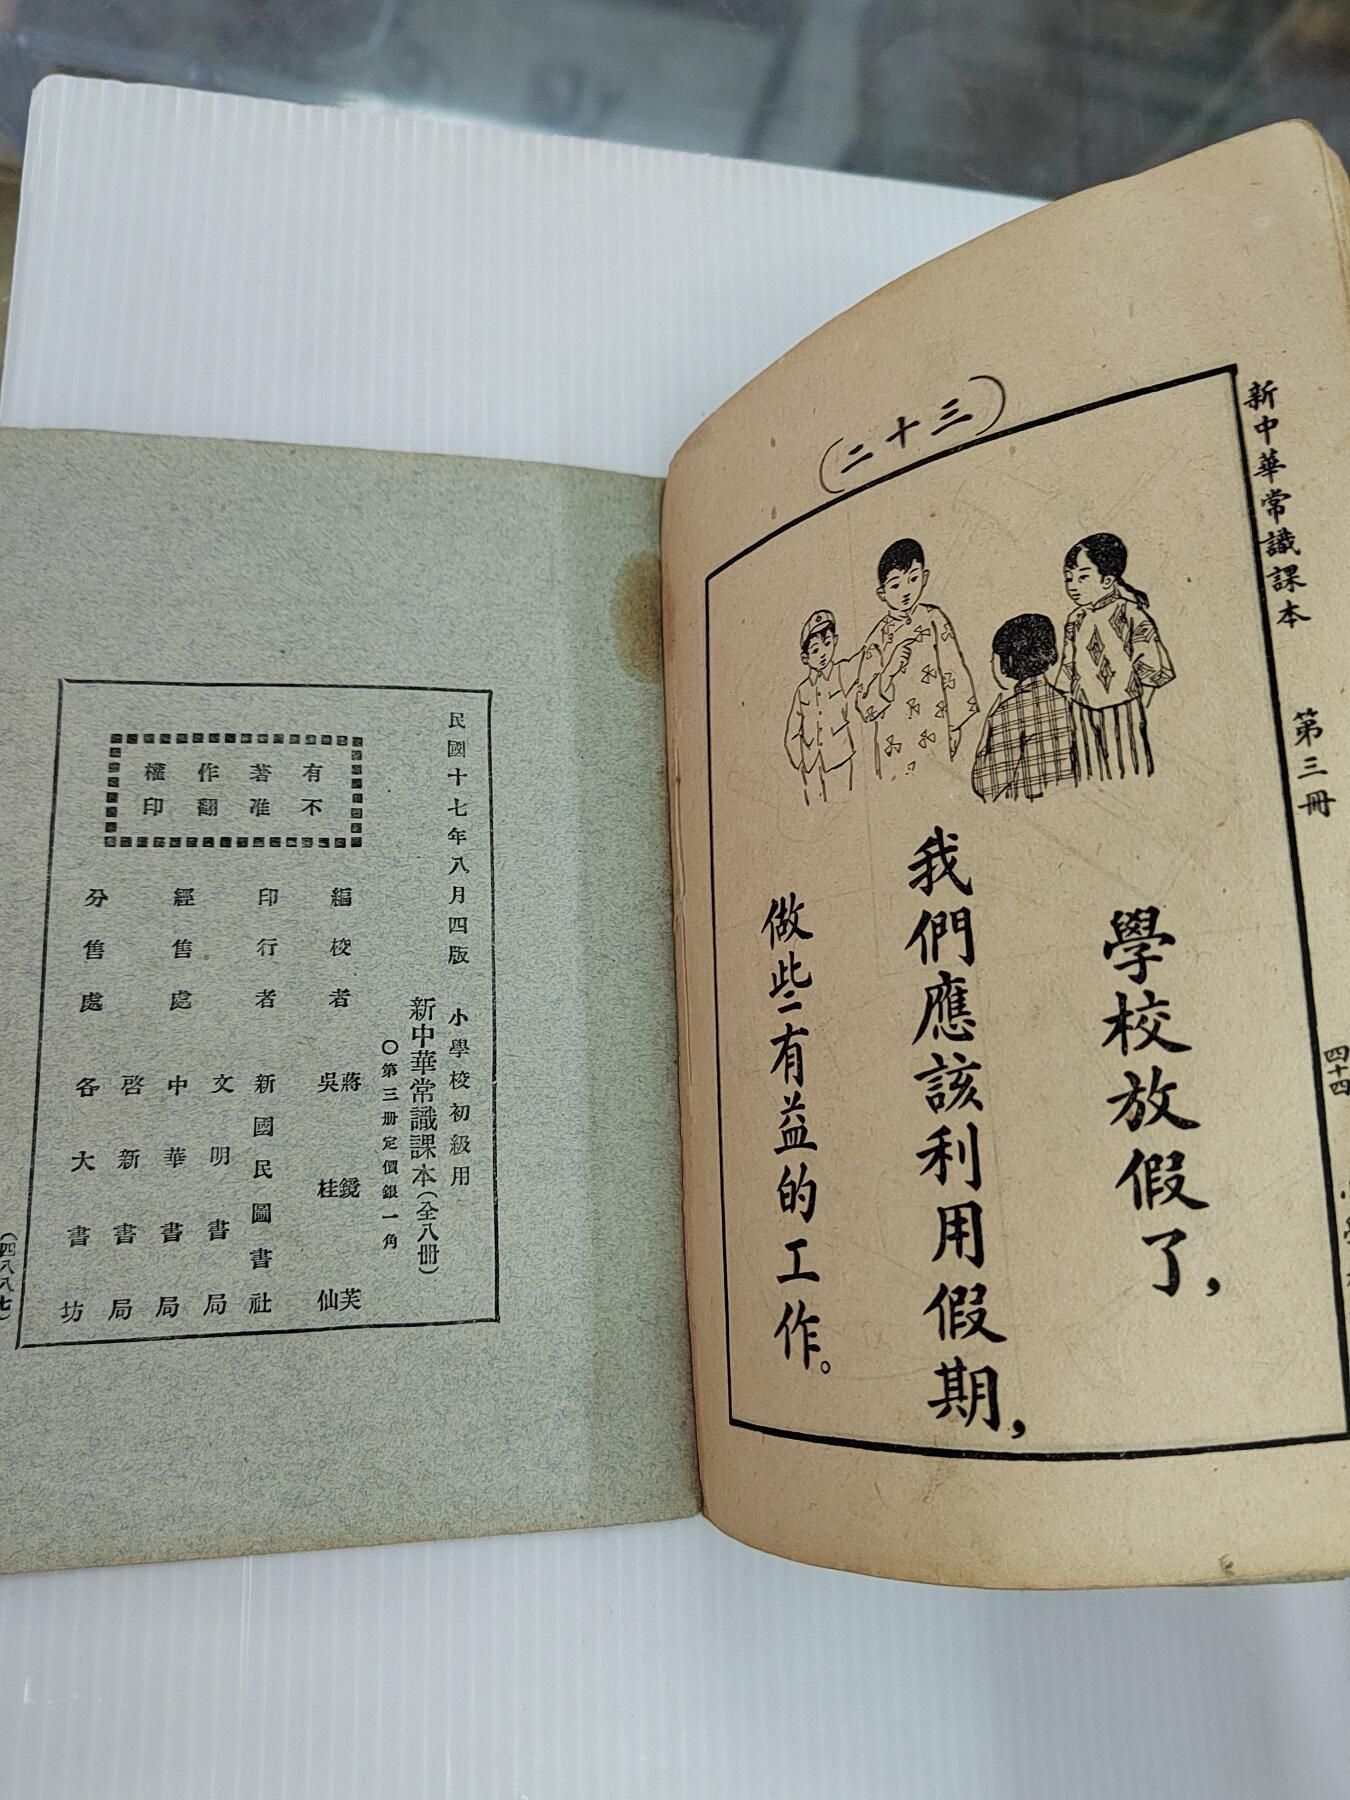 新中華常識課本 第三冊 四十四
(二十三)
學校放假了，
我們應該利用假期，
做些有益的工作。
民國十七年八月四版
小學校初級用
新中華常識課本(全八冊)
〇第三冊定價銀一角
編校者 蔣鏡芙
吳桂仙
印行者 新國民圖書社
經售處 文明書局
中華書局
啓新書局
分售處 各大書坊
有著作權
不准翻印
(四八八七)